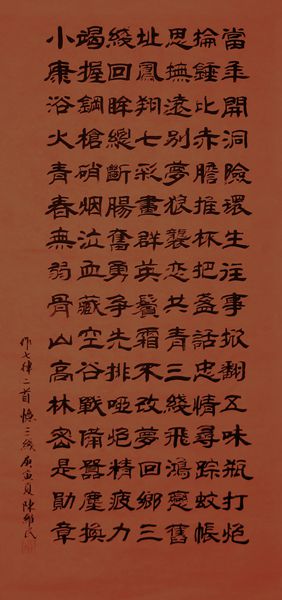 當年開洞險環生往事掀翻五味瓶打炮
掄錘比赤膽推杯把盞話忠情尋踪蚊帳
思撫遠別夢狼襲恋共青三綫飛鴻戀舊
址鳳翔七彩畫群英鬢霜不改夢回鄉三
綫回眸總斷腸奮勇争先排啞炮精疲力
竭握鋼槍硝烟泣血藏空谷戰備囂塵換
小康浴火青春無弱骨山高林密是勛章
作七律二首憶三綫庚寅夏陳民